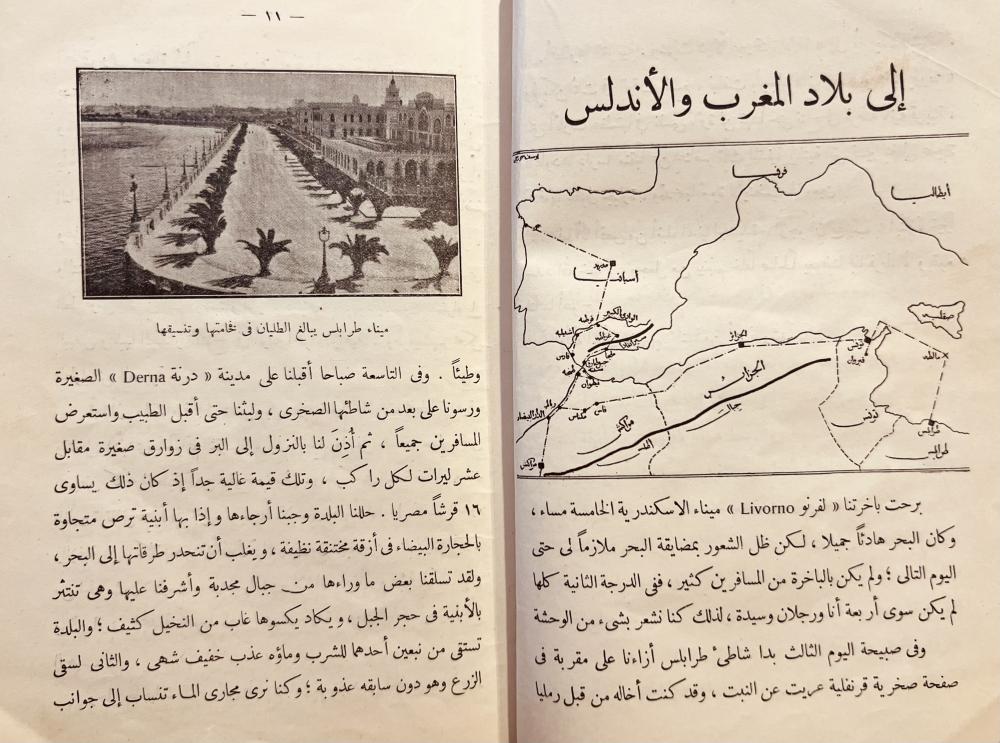 إلى بلاد المغرب والأندلس
فرنسا
أيطاليا
مدريد
أسبانيا
الوادى الكبير
قرطبه
غرناطه
اشبيليه
قادس
صقليه
الجزائر
تونس
قيروان
مالطه
الجزائر
جبال
تطوان
فاس
مكناس
الدار البيضاء
مراكش
أطلس
تونس
طرابلس
طرابلس
مراكش
برحت باخرتنا « لفرنو Livorno » ميناء الاسكندرية الخامسة مساء ،
وكان البحر هادئاً جميلا ، لكن ظل الشعور بمضايقة البحر ملازماً لى حتى
اليوم التالى ؛ ولم يكن بالباخرة من المسافرين كثير ، ففى الدرجة الثانية كلها
لم يكن سوى أربعة أنا ورجلان وسيدة ، لذلك كنا نشعر بشىء من الوحشة
وفى صبيحة اليوم الثالث بدا شاطئ طرابلس أزاءنا على مقربة فى
صفحة صخرية قرنفلية عريت عن النبت ، وقد كنت أخاله من قبل رمليا
— ١١ —
ميناء طرابلس يبالغ الطليان فى فخامتها وتنسيقها
وطيئاً . وفى التاسعة صباحا أقبلنا على مدينة « درنة Derna » الصغيرة
ورسونا على بعد من شاطئها الصخرى ، ولبثنا حتى أقبل الطبيب واستعرض
المسافرين جميعاً ، ثم أُذِنَ لنا بالنزول إلى البر فى زوارق صغيرة مقابل
عشر ليرات لكل راكب ، وتلك قيمة غالية جداً إذ كان ذلك يساوى
١٦ قرشاً مصريا . حللنا البلدة وجبنا أرجاءها وإذا بها أبنية ترص متجاوة
بالحجارة البيضاء فى أزقة مختنقة نظيفة ، ويغلب أن تنحدر طرقاتها إلى البحر ،
ولقد تسلقنا بعض ما وراءها من جبال مجدبة وأشرفنا عليها وهى تنتثر
بالأبنية فى حجر الجبل ، ويكاد يكسوها غاب من النخيل كثيف ؛ والبلدة
تستقى من نبعين أحدهما للشرب وماؤه عذب خفيف شهى ، والثانى لسقى
الزرع وهو دون سابقه عذوبة ؛ وكنا نرى مجارى الماء تنساب إلى جوانب